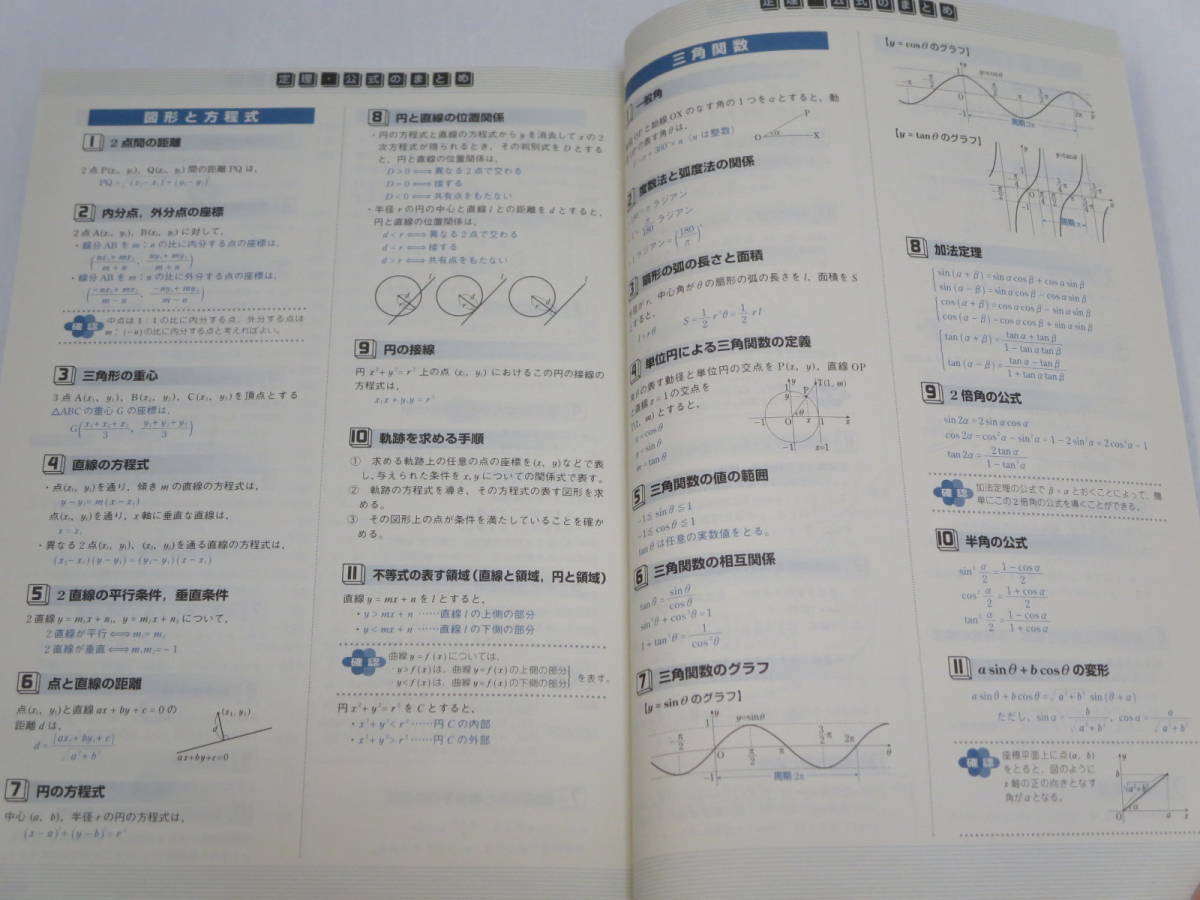 定理・公式のまとめ
図形と方程式
1 2点間の距離
2点P(x₁, y₁), Q(x₂, y₂)間の距離PQは,
PQ=√(x₂−x₁)²+(y₂−y₁)²
2 内分点，外分点の座標
2点A(x₁, y₁), B(x₂, y₂)に対して,
・線分ABをm：nの比に内分する点の座標は,
((nx₁+mx₂)/(m+n), (ny₁+my₂)/(m+n))
・線分ABをm：nの比に外分する点の座標は,
((−nx₁+mx₂)/(m−n), (−ny₁+my₂)/(m−n))
確認 中点は1：1の比に内分する点，外分する点は
m：(−n)の比に内分する点と考えればよい。
3 三角形の重心
3点A(x₁, y₁), B(x₂, y₂), C(x₃, y₃)を頂点とする
△ABCの重心Gの座標は,
G((x₁+x₂+x₃)/3, (y₁+y₂+y₃)/3)
4 直線の方程式
・点(x₁, y₁)を通り，傾きmの直線の方程式は,
y−y₁=m(x−x₁)
点(x₁, y₁)を通り，x軸に垂直な直線は,
x=x₁
・異なる2点(x₁, y₁), (x₂, y₂)を通る直線の方程式は,
(x₂−x₁)(y−y₁)=(y₂−y₁)(x−x₁)
5 2直線の平行条件，垂直条件
2直線y=m₁x+n₁, y=m₂x+n₂について,
2直線が平行⟺m₁=m₂
2直線が垂直⟺m₁m₂=−1
6 点と直線の距離
点(x₁, y₁)と直線ax+by+c=0の
距離dは,
d=|ax₁+by₁+c|/√a²+b²
(x₁, y₁)
d
ax+by+c=0
7 円の方程式
中心(a, b), 半径rの円の方程式は,
(x−a)²+(y−b)²=r²
8 円と直線の位置関係
・円の方程式と直線の方程式からyを消去してxの2
次方程式が得られるとき，その判別式をDとする
と，円と直線の位置関係は,
D>0⟺異なる2点で交わる
D=0⟺接する
D<0⟺共有点をもたない
・半径rの円の中心と直線lとの距離をdとすると,
円と直線の位置関係は,
d<r⟺異なる2点で交わる
d=r⟺接する
d>r⟺共有点をもたない
9 円の接線
円x²+y²=r²上の点(x₁, y₁)におけるこの円の接線の
方程式は,
x₁x+y₁y=r²
10 軌跡を求める手順
① 求める軌跡上の任意の点の座標を(x, y)などで表
し，与えられた条件をx, yについての関係式で表す。
② 軌跡の方程式を導き，その方程式の表す図形を求
める。
③ その図形上の点が条件を満たしていることを確か
める。
11 不等式の表す領域（直線と領域，円と領域）
直線y=mx+nをlとすると,
・y>mx+n……直線lの上側の部分
・y<mx+n……直線lの下側の部分
確認 曲線y=f(x)については,
y>f(x)は，曲線y=f(x)の上側の部分
y<f(x)は，曲線y=f(x)の下側の部分
を表す。
円x²+y²=r²をCとすると,
・x²+y²<r²……円Cの内部
・x²+y²>r²……円Cの外部
定理・公式のまとめ
三角関数
1 一般角
OPと始線OXのなす角の1つをαとすると，動
の表す角θは,
θ=α+360°×n（nは整数）
P
O α X
2 度数法と弧度法の関係
180°=πラジアン
1°=π/180ラジアン
1ラジアン=(180/π)°
3 扇形の弧の長さと面積
半径がr, 中心角がθの扇形の弧の長さをl, 面積をS
とすると,
l=rθ S=1/2 r²θ=1/2 rl
4 単位円による三角関数の定義
角θの表す動径と単位円の交点をP(x, y), 直線OP
と直線x=1の交点を
T(1, m)とすると,
x=cosθ
y=sinθ
m=tanθ
T(1, m)
x=1
5 三角関数の値の範囲
−1≦sinθ≦1
−1≦cosθ≦1
tanθは任意の実数値をとる。
6 三角関数の相互関係
tanθ=sinθ/cosθ
sin²θ+cos²θ=1
1+tan²θ=1/cos²θ
7 三角関数のグラフ
【y=sinθのグラフ】
y=sinθ
周期2π
【y=cosθのグラフ】
y=cosθ
周期2π
【y=tanθのグラフ】
y=tanθ
周期π
8 加法定理
sin(α+β)=sinαcosβ+cosαsinβ
sin(α−β)=sinαcosβ−cosαsinβ
cos(α+β)=cosαcosβ−sinαsinβ
cos(α−β)=cosαcosβ+sinαsinβ
tan(α+β)=(tanα+tanβ)/(1−tanαtanβ)
tan(α−β)=(tanα−tanβ)/(1+tanαtanβ)
9 2倍角の公式
sin2α=2sinαcosα
cos2α=cos²α−sin²α=1−2sin²α=2cos²α−1
tan2α=2tanα/(1−tan²α)
確認 加法定理の公式でβ=αとおくことによって，簡
単にこの2倍角の公式を導くことができる。
10 半角の公式
sin²α/2=(1−cosα)/2
cos²α/2=(1+cosα)/2
tan²α/2=(1−cosα)/(1+cosα)
11 asinθ+bcosθの変形
asinθ+bcosθ=√a²+b² sin(θ+α)
ただし，sinα=b/√a²+b², cosα=a/√a²+b²
確認 座標平面上に点(a, b)
をとると，図のように
x軸の正の向きとなす
角がαとなる。
√a²+b²